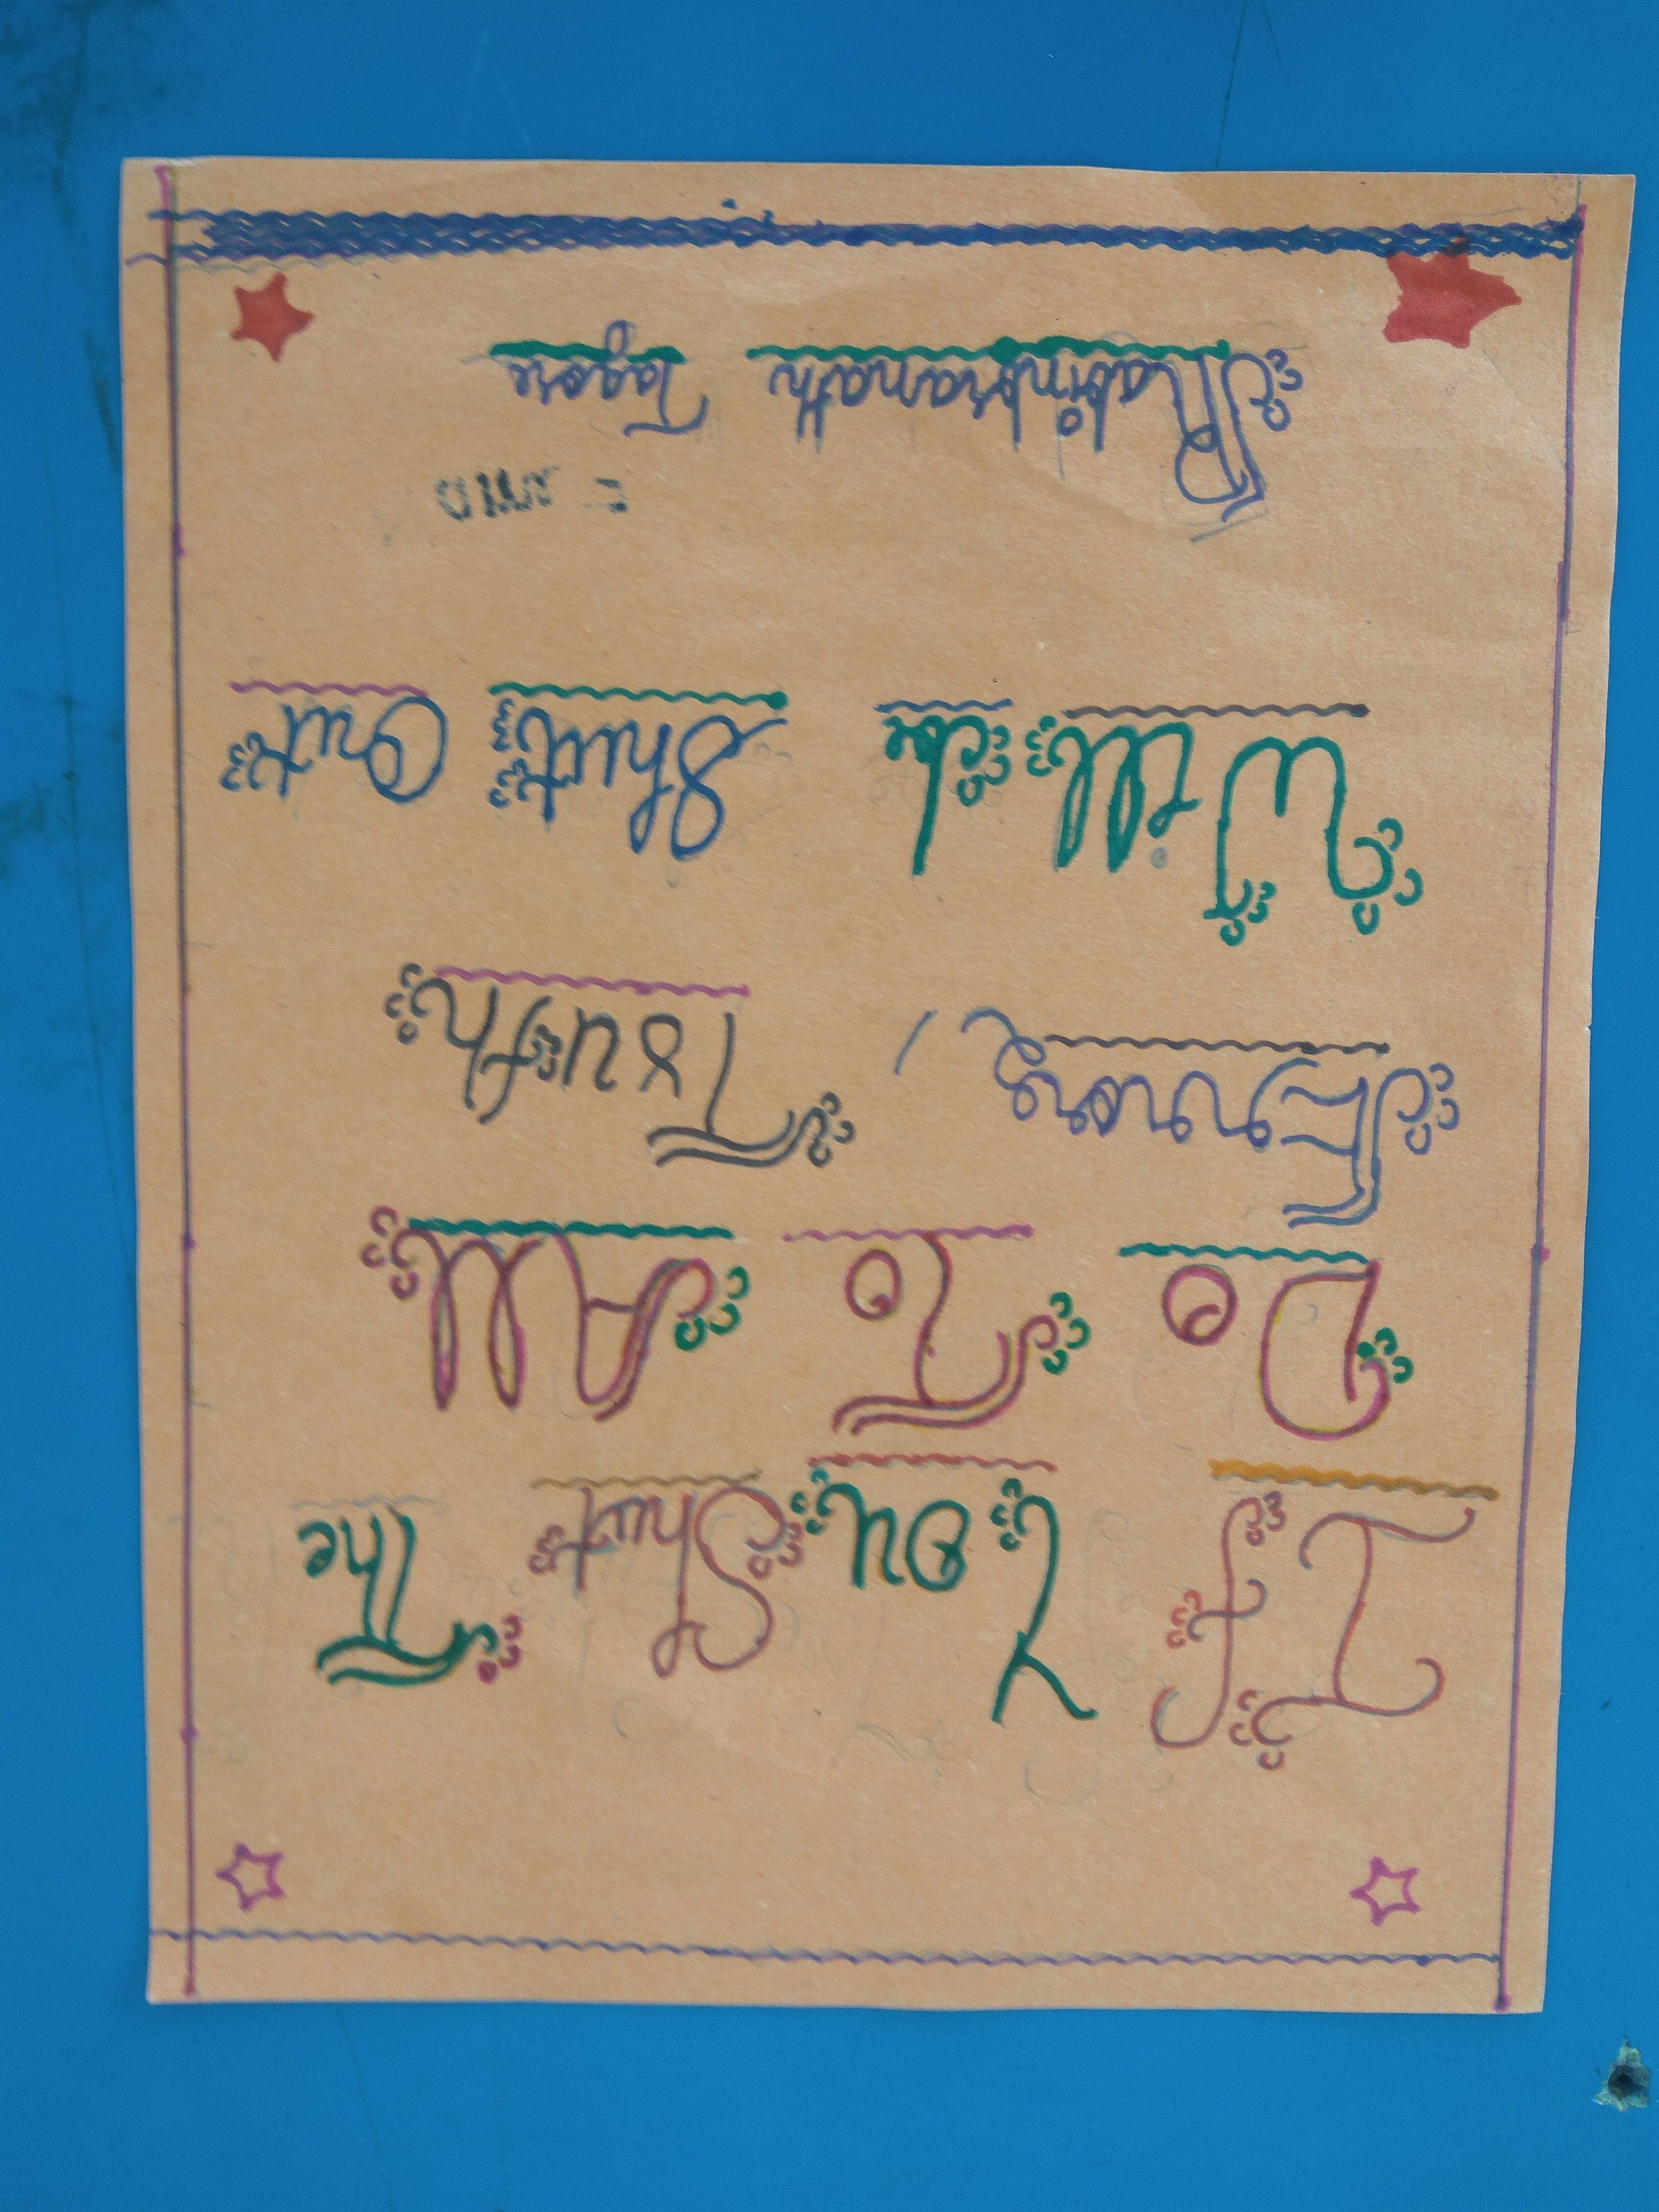 If You Shut The
Do To All
Errors, Truth
Will be Shut Out
Rabindranath Tagore